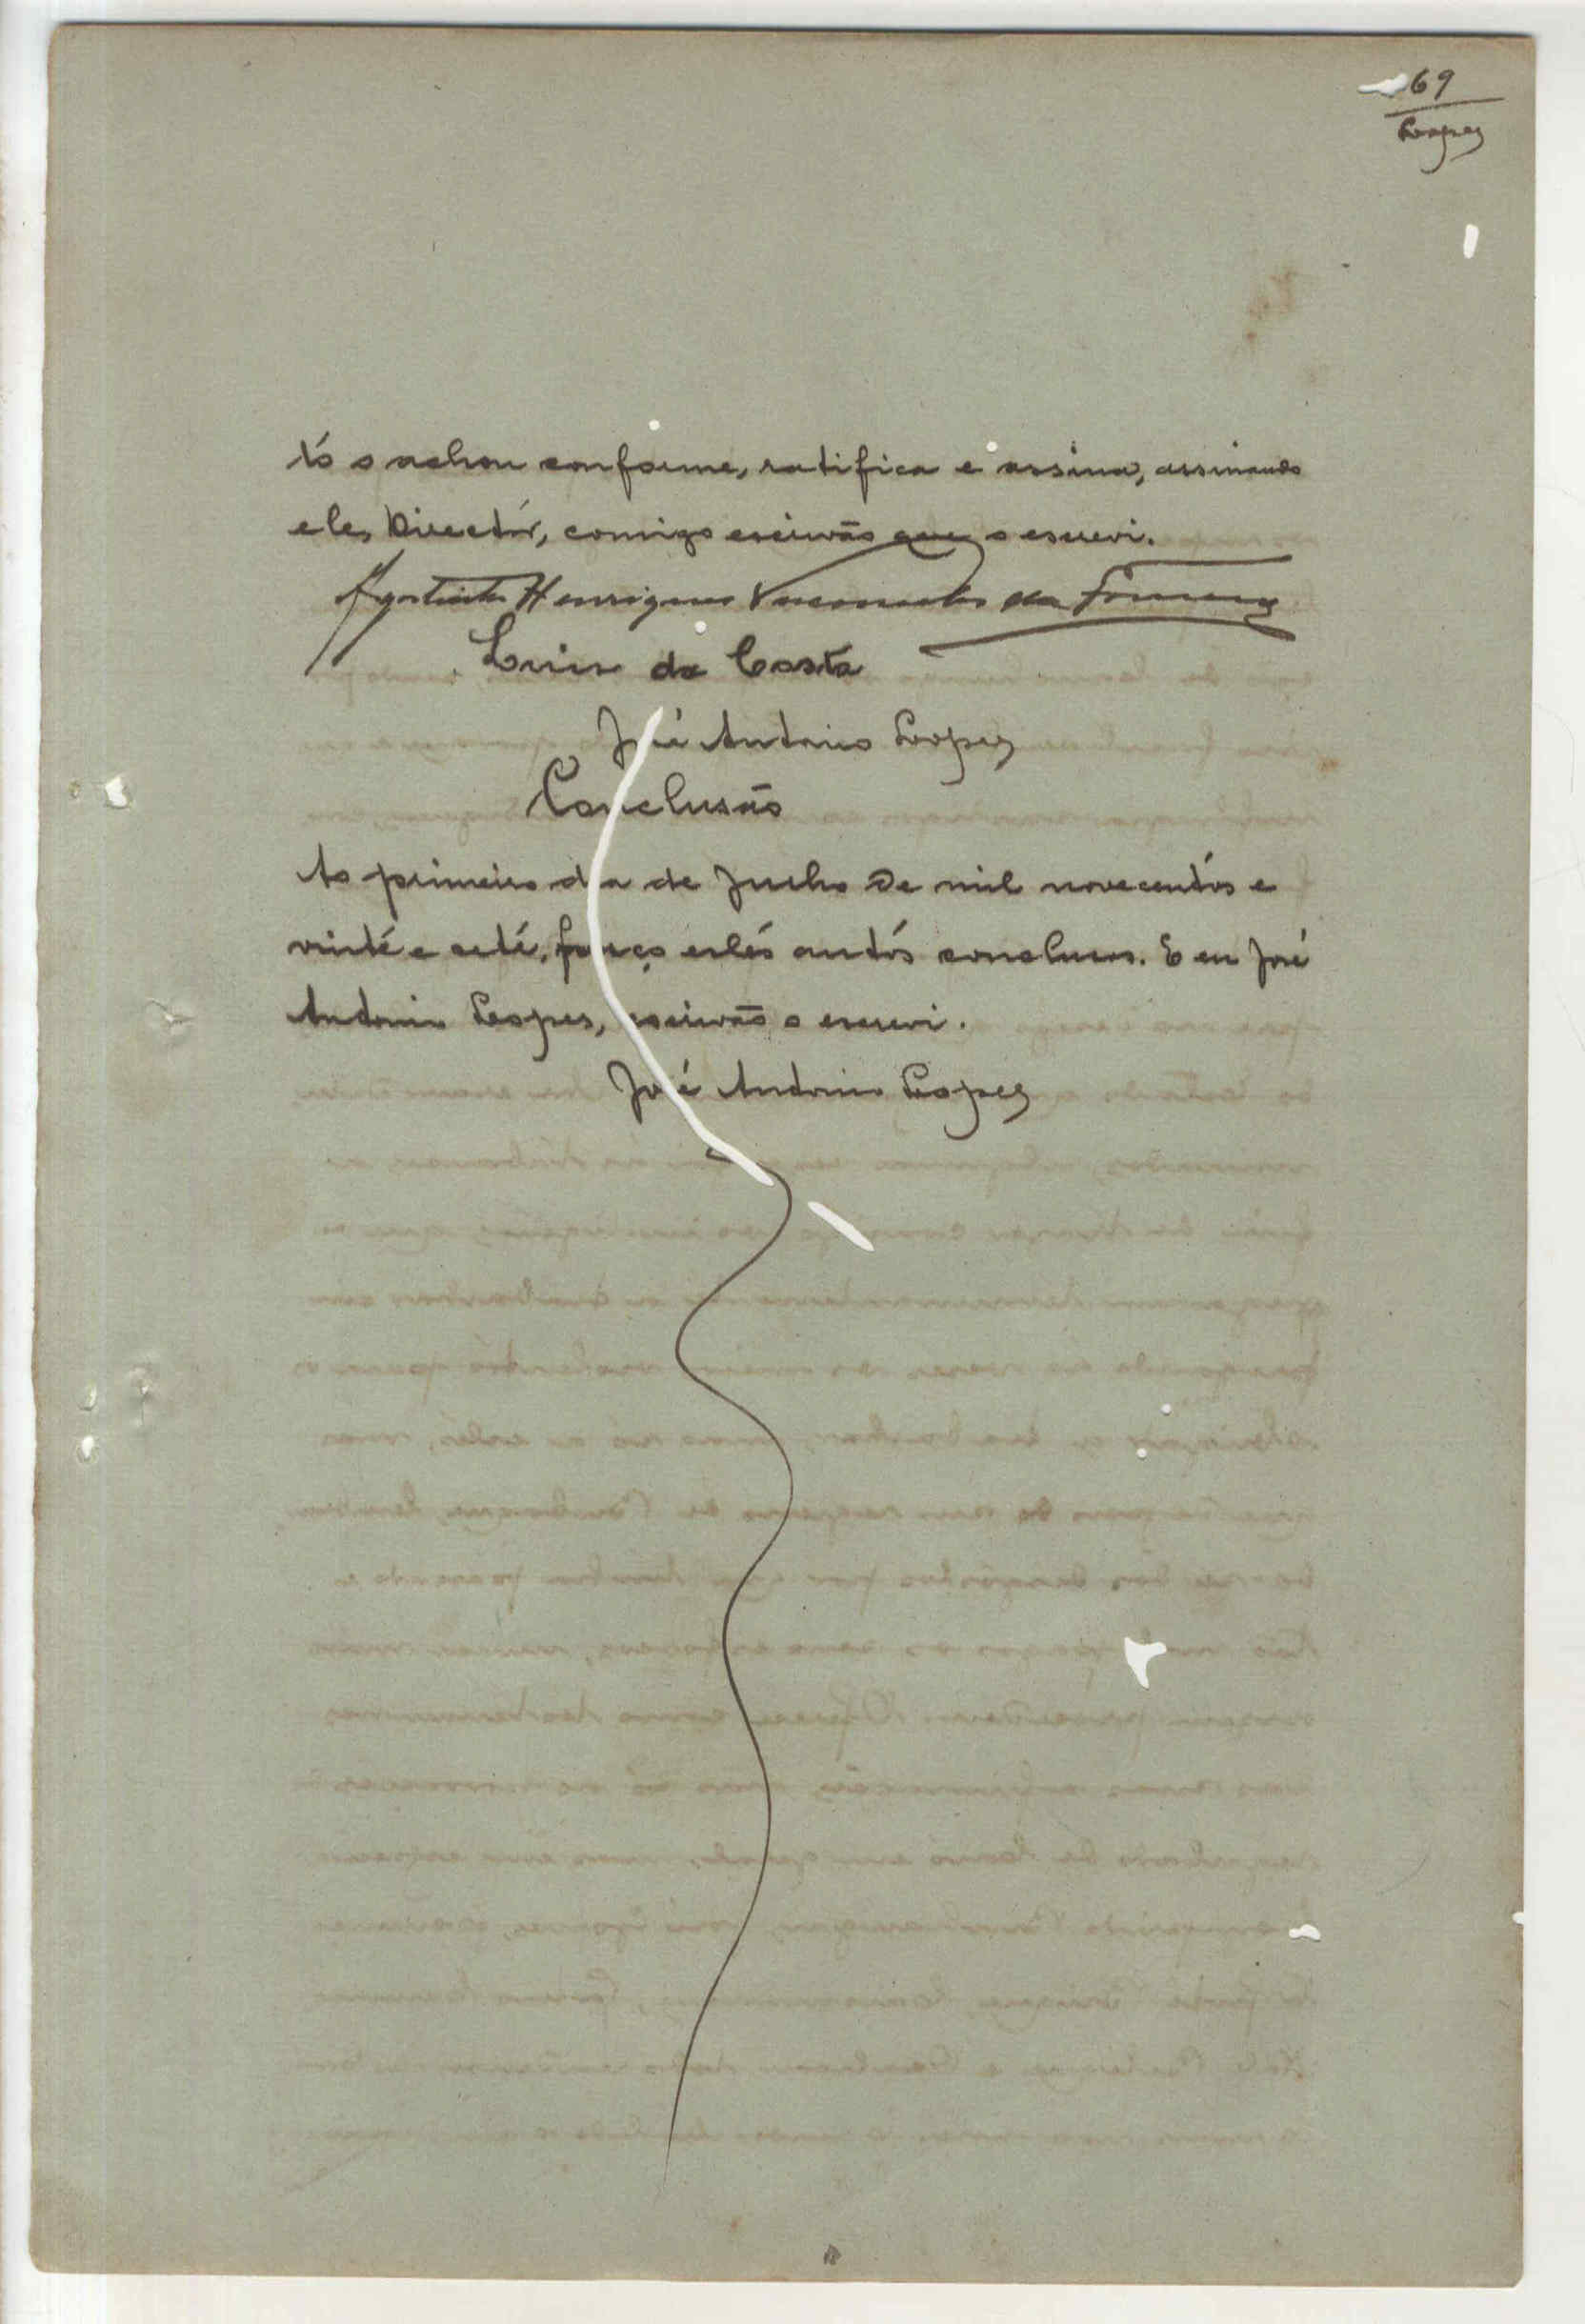 69
Lopes
tó o achou conforme, ratifica e assina, assinando
ele, Directór, comigo escrivão que o escrevi.
Agostinho Henriques Vasconcelos da Fonseca
Luiz da Costa
José Antonio Lopes
Conclusão
Ao primeiro dia de Junho de mil novecentós e
vinté e seté, faço estés autós conclusos. E eu José
Antonio Lopes, escrivão o escrevi.
José Antonio Lopes